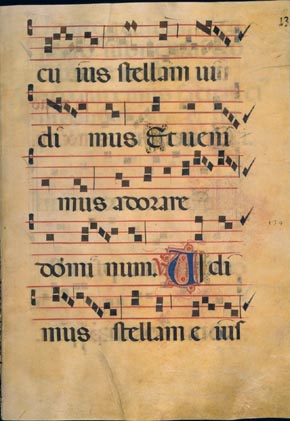 cu ius stellam vi
di mus Et veni
mus adorare
domi num. Vidi
mus stellam e ius